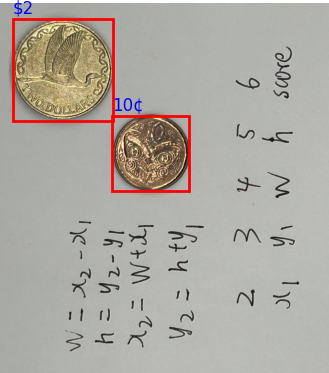 $2
TWO DOLLARS
10¢
w = x2 - x1
h = y2 - y1
x2 = w + x1
y2 = h + y1
2 3 4 5 6
x1 y1 w h score